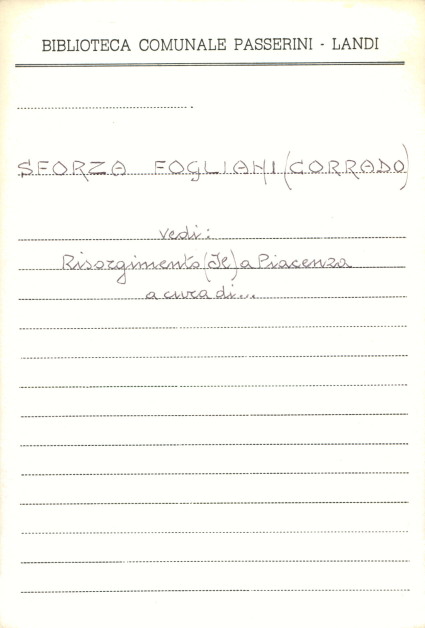 BIBLIOTECA COMUNALE PASSERINI - LANDI
SFORZA FOGLIANI (CORRADO)
vedi:
Risorgimento (Il) a Piacenza
a cura di...